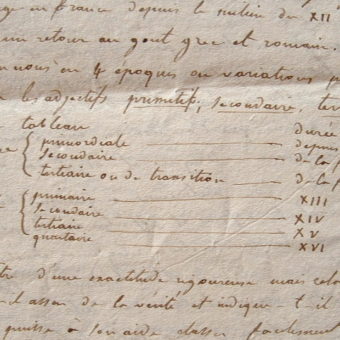 en france depuis le milieu du XII
un retour au gout grec et romain.
en 4 époques ou variations
les adjectifs primitif, secondaire, ter
tableau durée
primordiale depuis
secondaire de la
tertiaire ou de transition de la
primaire XIII
secondaire XIV
tertiaire XV
quartaire XVI
d'une exactitude rigoureuse mais
de la vérité et indique-t-il
puisse à son aide classer facilement